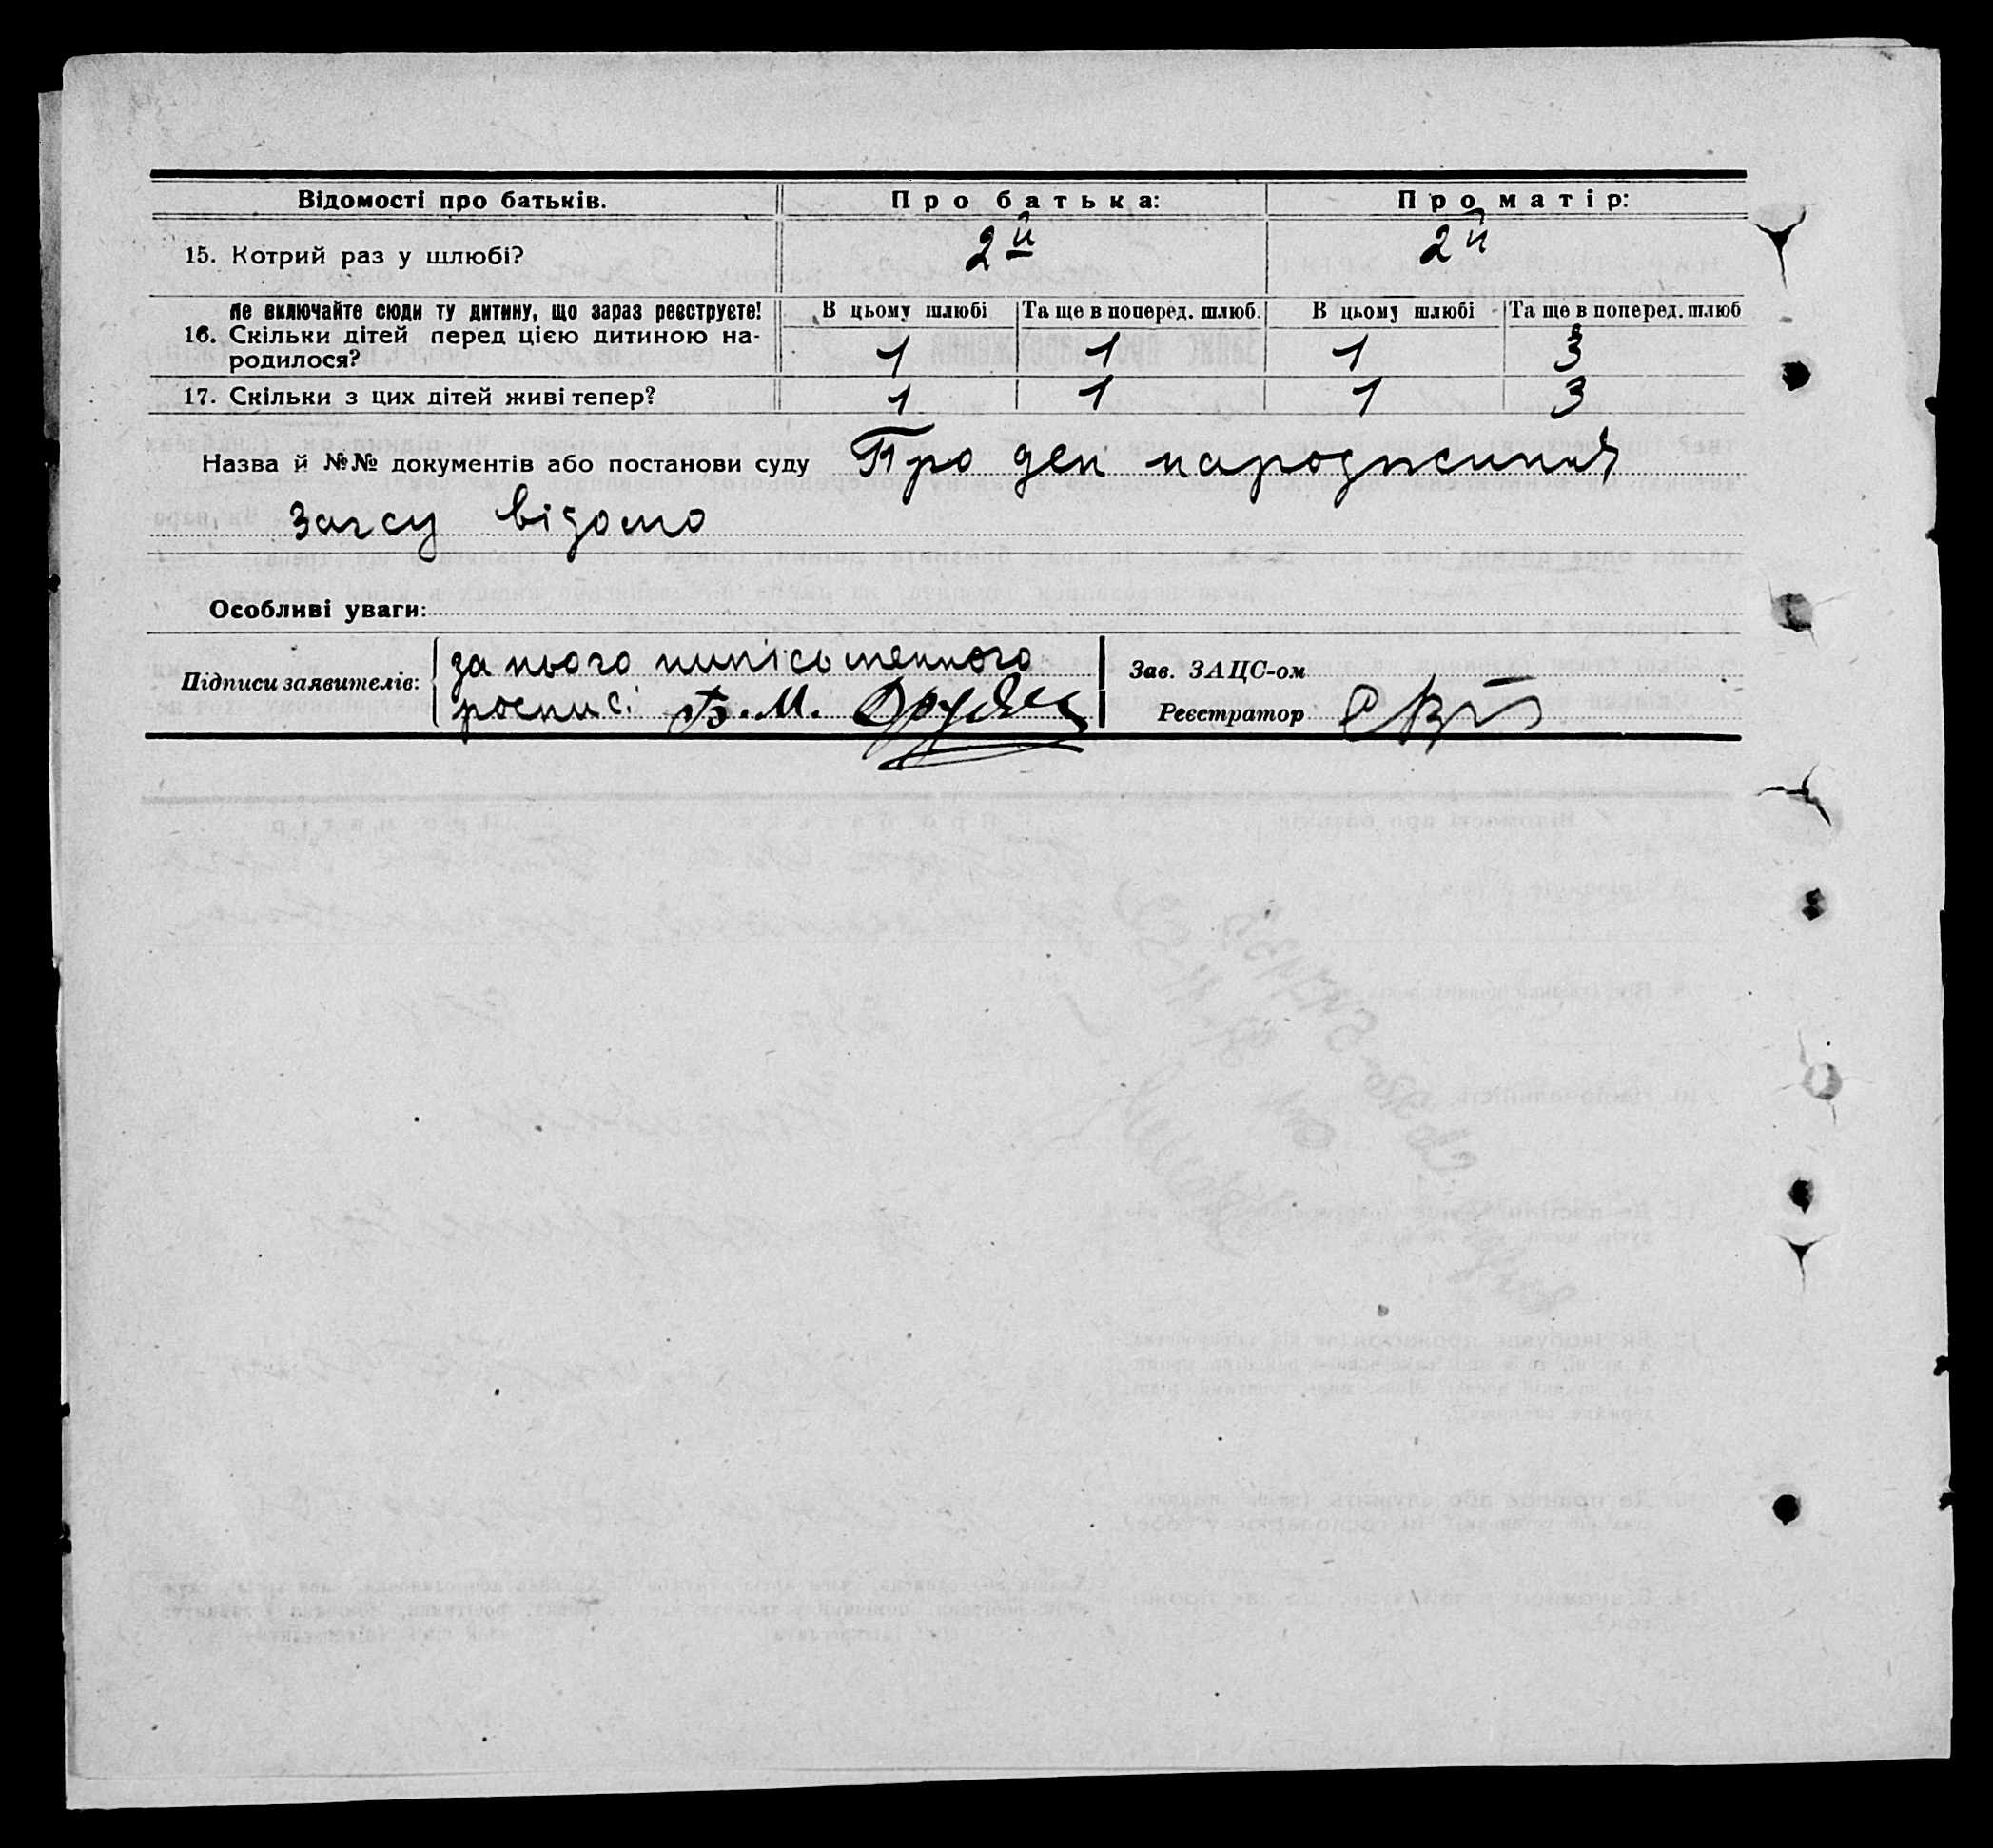 Відомості про батьків. Про батька: Про матір:
15. Котрий раз у шлюбі? 2й 2й
Не включайте сюди ту дитину, що зараз реєструєте! В цьому шлюбі Та ще в поперед. шлюб. В цьому шлюбі Та ще в поперед. шлюб
16. Скільки дітей перед цією дитиною на-
родилося? 1 1 1 3
17. Скільки з цих дітей живі тепер? 1 1 1 3
Назва й №№ документів або постанови суду Про ден народження
Загсу відомо
Особливі уваги:
Підписи заявителів: за нього
Б. М.
Зав. ЗАЦС-ом
Реєстратор